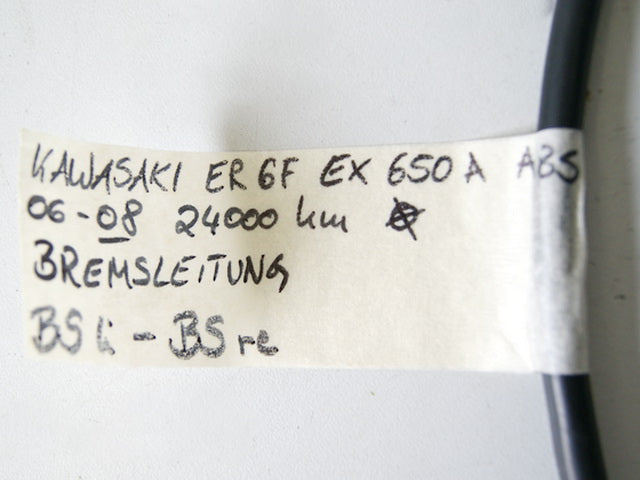 KAWASAKI ER 6F EX 650 A ABS
06-08 24000 km
BREMSLEITUNG
BS li - BS re